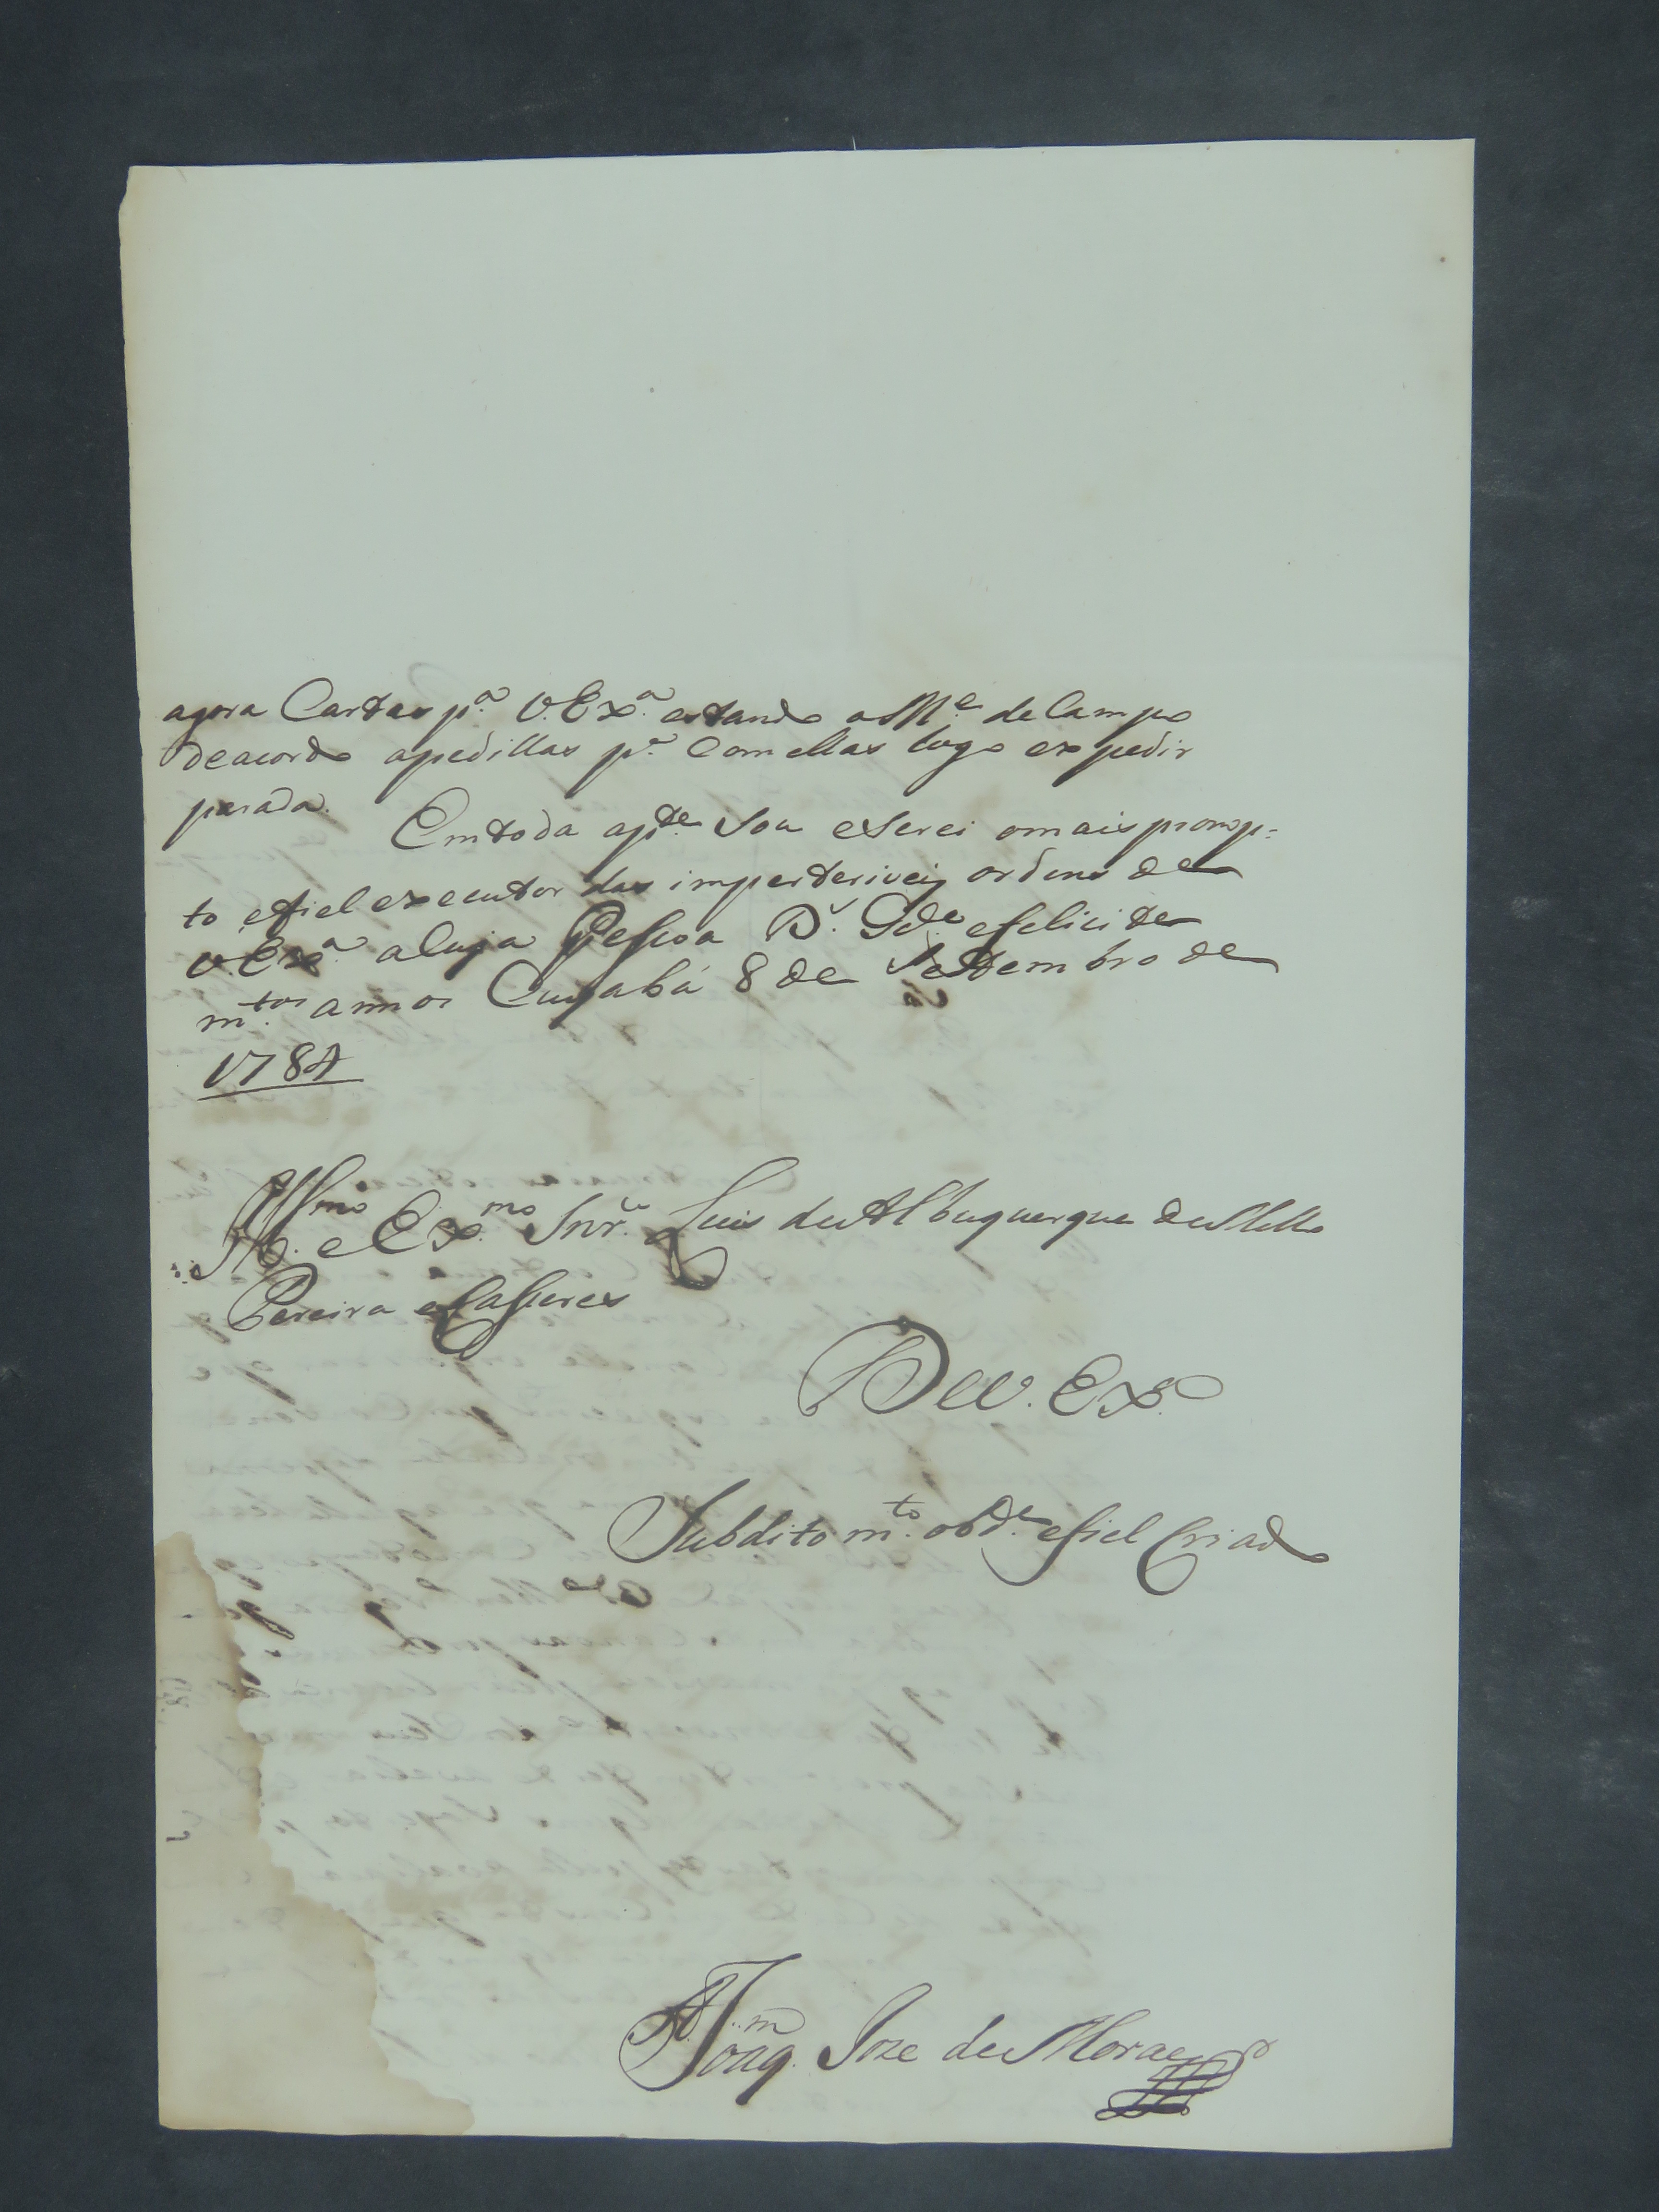 agora Cartas p.ª V. Ex.ª estando o M.e de Campo
deacordo apedillas p.ª Com ellas logo expedir
parada.
Emtoda ap.te Sou eSerei omais promp-
to efiel executor das imperteriveis ordens de
V. Ex.ª aCuja Pessoa D.s G.de efelicite
m.tos annos Cuyabá 8 de Settembro de
1784
Ill.mo e Ex.mo Snr. Luis de Albuquerque de Mello
Pereira eCasseres
De V. Ex.ª
Subdito m.to ob.de efiel Criado
Joaq.m Joze de Moraes